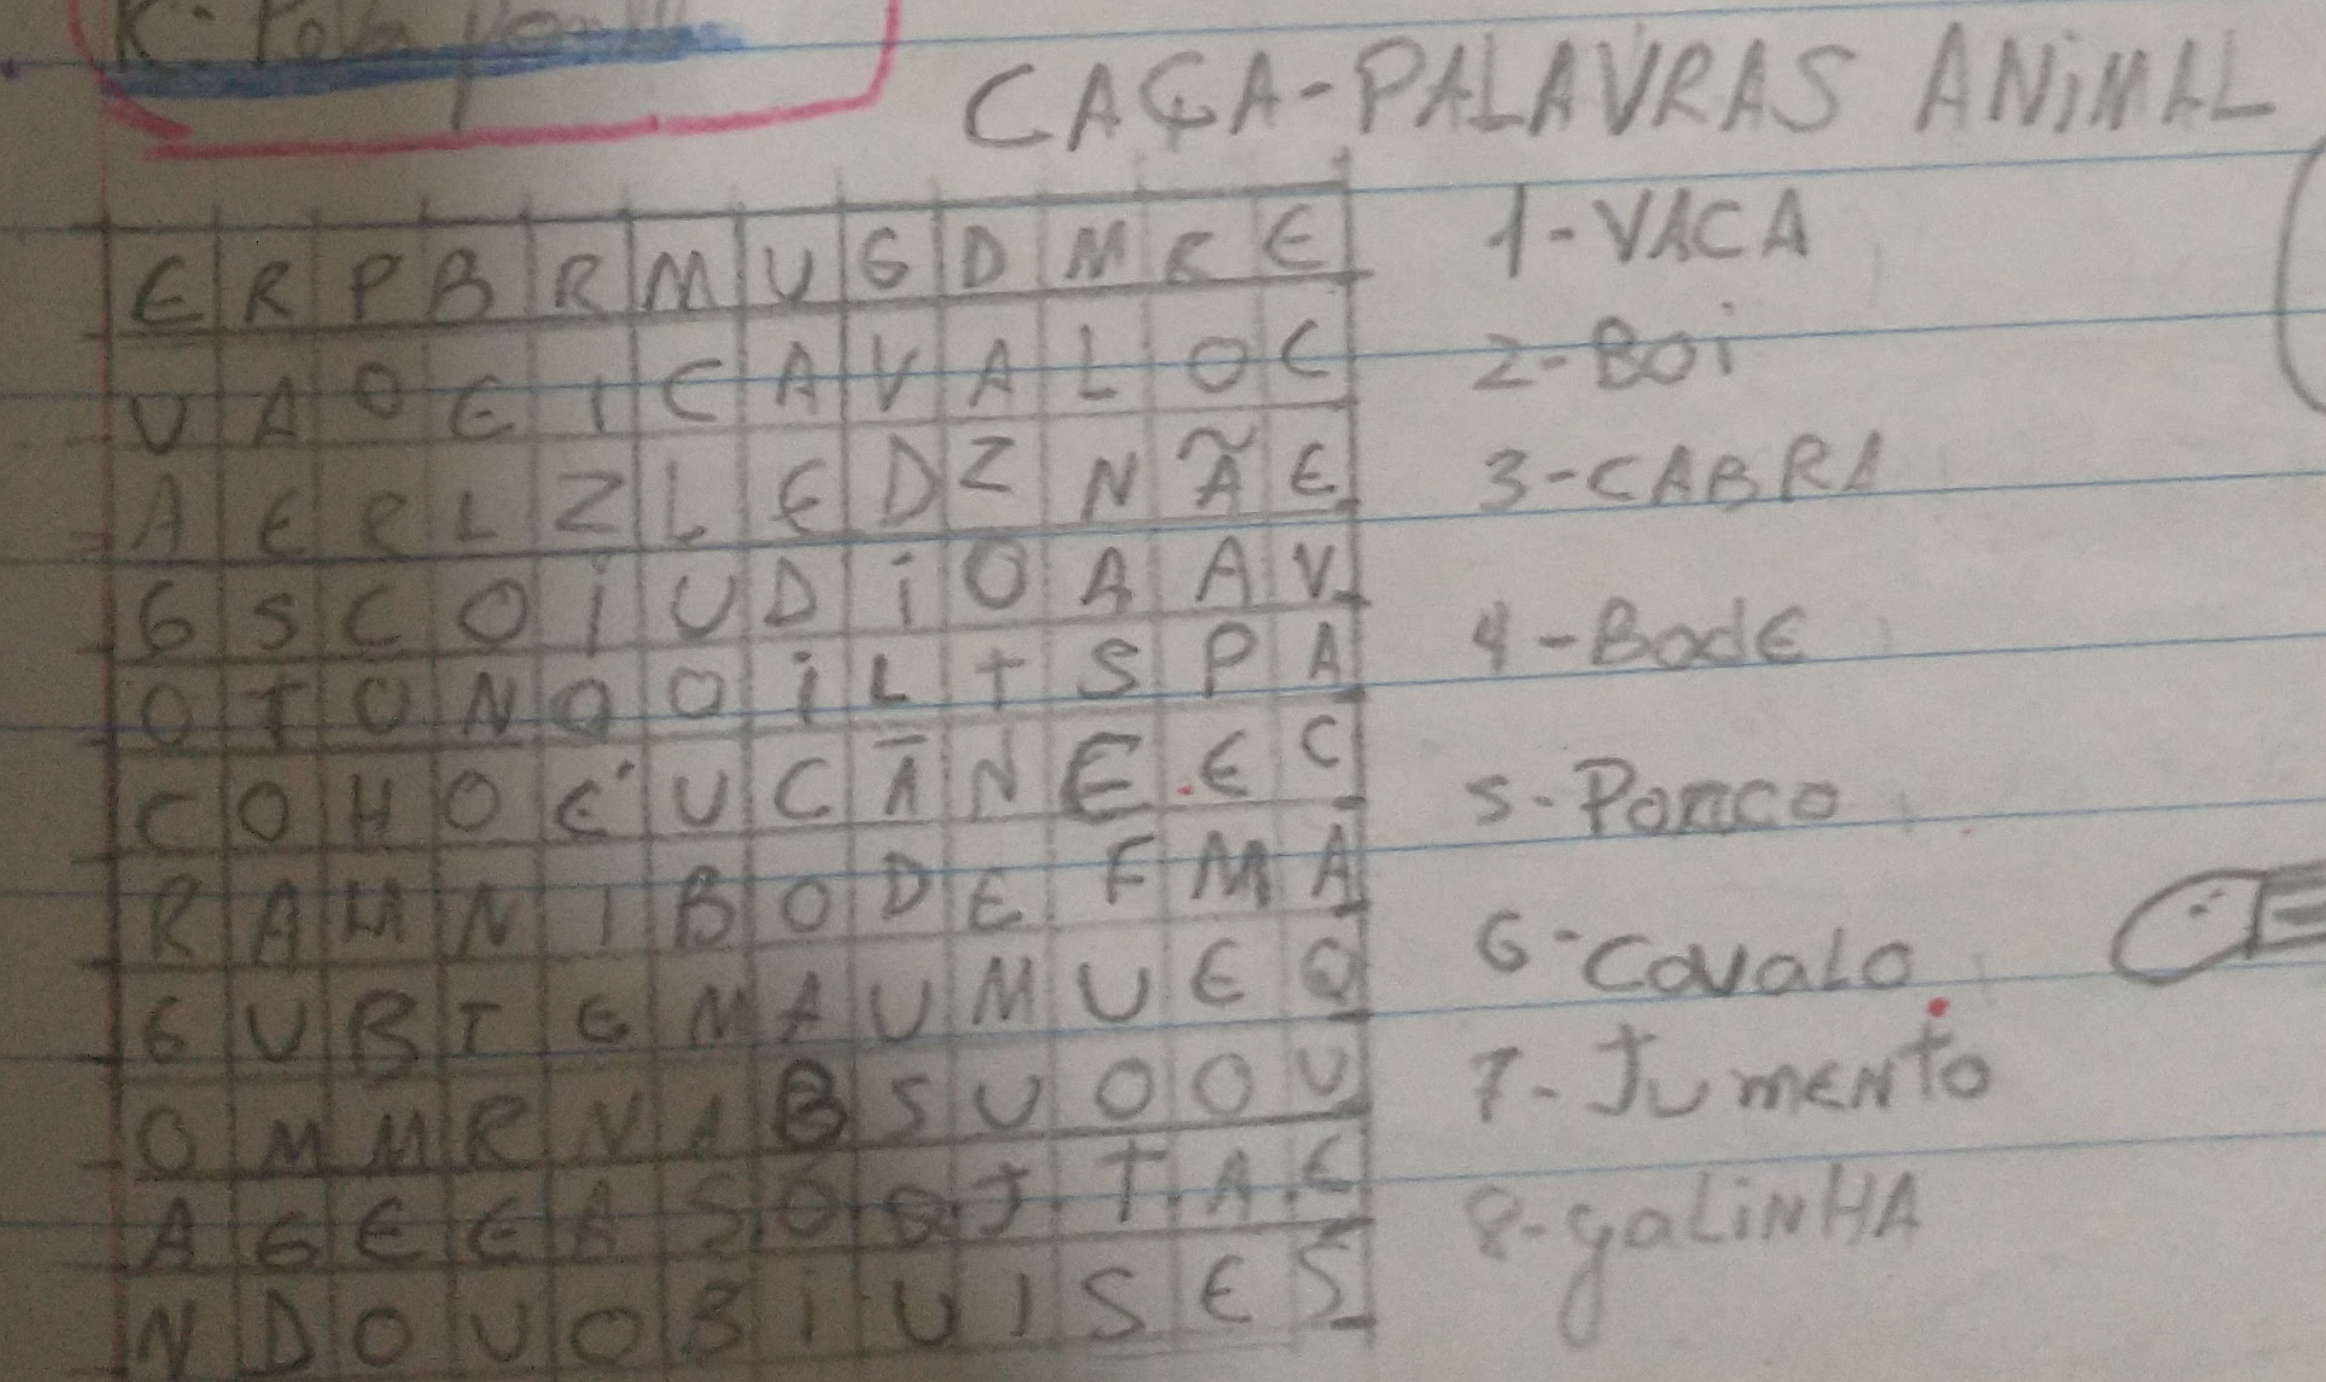 CAÇA-PALAVRAS ANiMAL
E R P B R M U G D M R E
V A O E I C A V A L O C
A E R L Z L E D Z N Ã E
G S C O i U D i O A A V
O T O N O O i L T S P A
C O H O E U C A N E E C
R A M N I B O D E F M A
G U B I E M A U M U E O
O M M R N A B S U O O U
A G E E A S O Q J T A E
N D O U O B i U I S E S
1-VACA
2-BOi
3-CABRA
4-BodE
5-Porco
6-CavaLo
7-JumENto
8-gaLiNHA